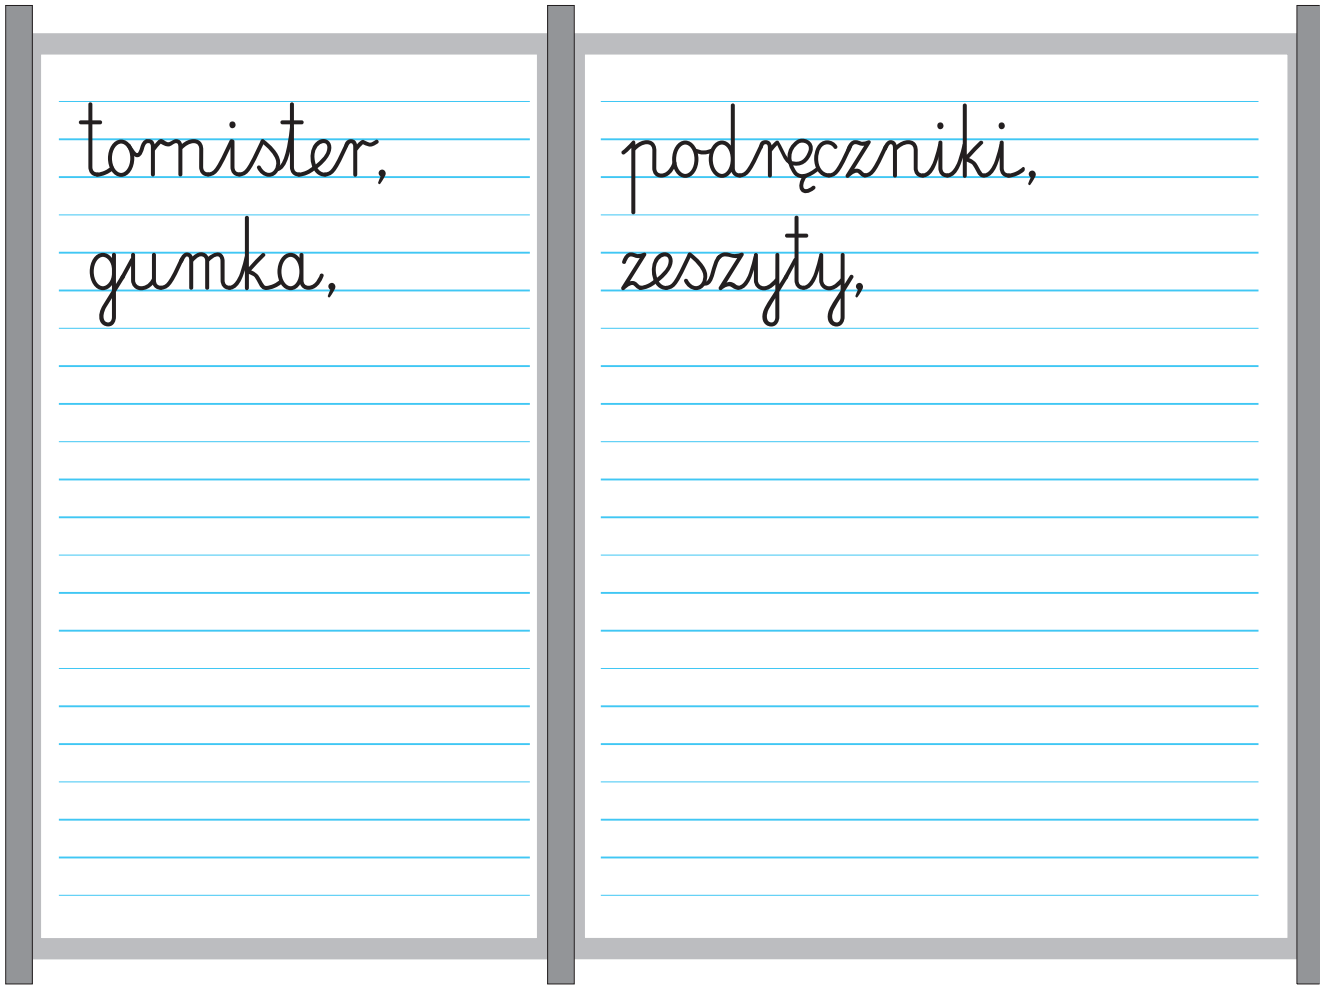 tornister,
gumka,
podręczniki,
zeszyty,